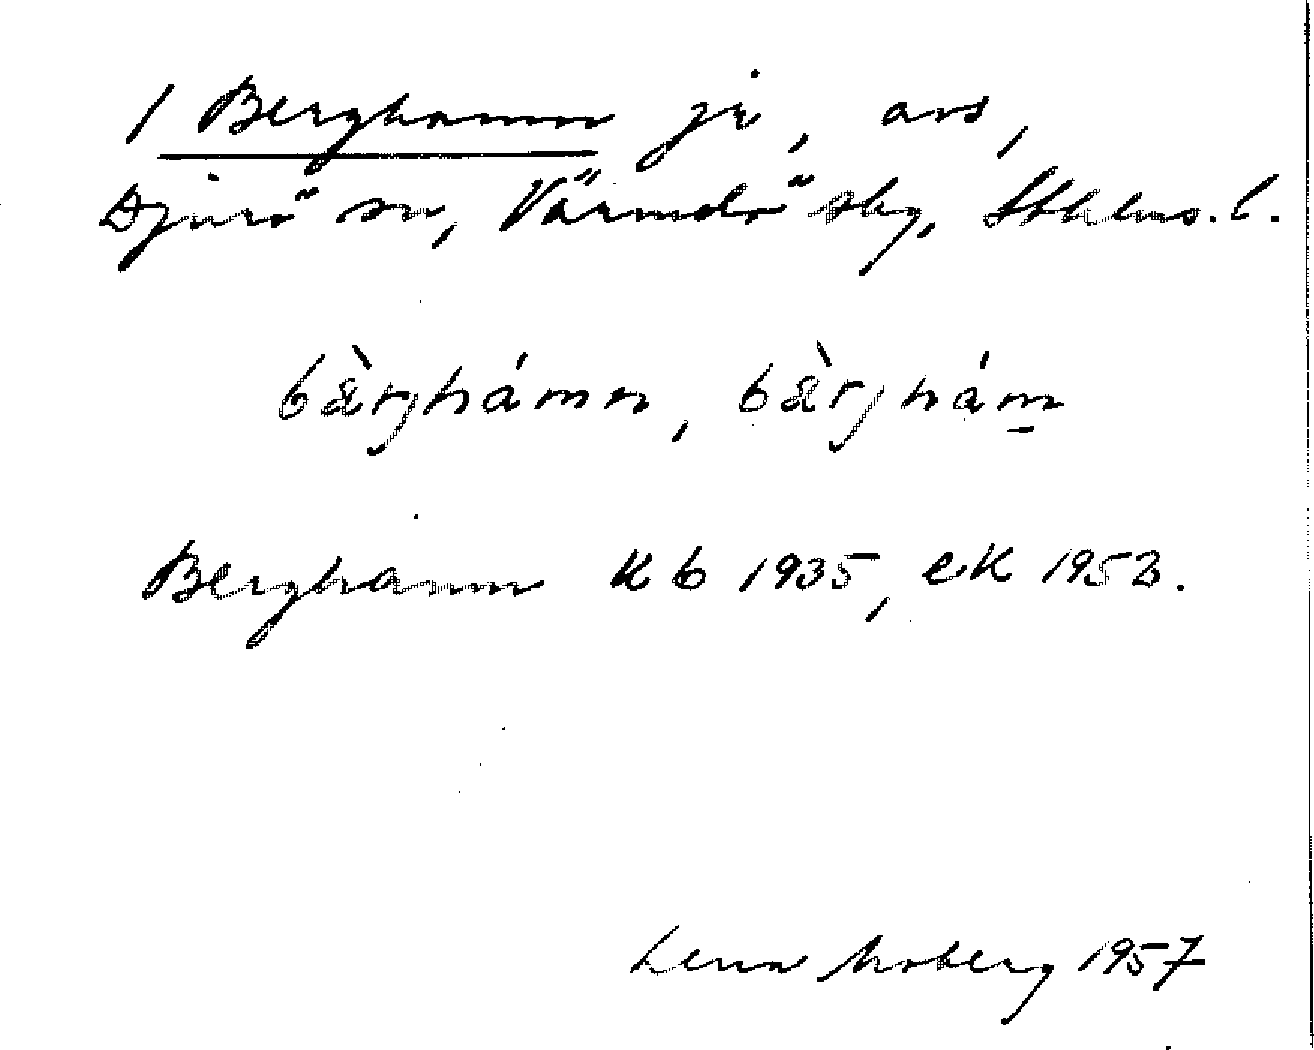 1 Berghamn ju, avs,
Djurö sn, Värmdö sbg, Sthlms. l.
bæ̀rjhámn, bæ̀rjhám̲
Berghamn Kb 1935, ek 1953.
Lena Moberg 1957